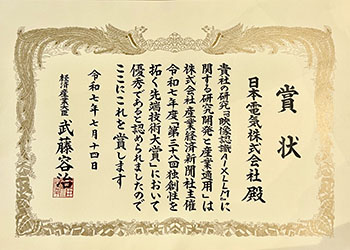 賞状
日本電気株式会社 殿
貴社の研究「映像認識AI×LLMに
関する研究開発と産業適用」は
株式会社産業経済新聞社主催
令和七年度「第三十八回独創性を
拓く先端技術大賞」において
優秀であると認められましたので
ここにこれを賞します
令和七年七月十四日
経済産業大臣 武藤容治